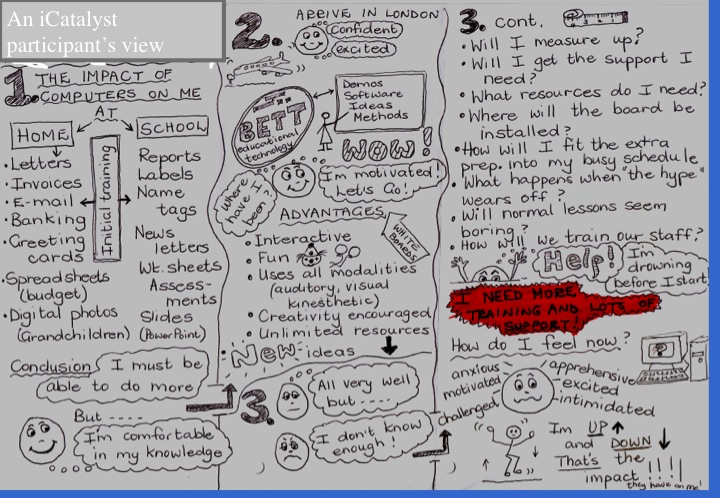 An iCatalyst
participant's view
1. THE IMPACT OF
COMPUTERS ON ME
AT
HOME
SCHOOL
Initial training
• Letters
• Invoices
• E-mail
• Banking
• Greeting
cards
• Spreadsheets
(budget)
• Digital photos
(Grandchildren)
Reports
Labels
Name
tags
News
letters
Wt. sheets
Assess-
ments
Slides
(PowerPoint)
Conclusion I must be
able to do more
But ----
I'm comfortable
in my knowledge
2. ARRIVE IN LONDON
Confident
excited
BETT
educational
technology
Demos
Software
Ideas
Methods
WOW!
Where
have I
been?
I'm motivated!
Let's Go!
ADVANTAGES
WHITE
BOARDS
• Interactive
• Fun
• Uses all modalities
(auditory, visual
kinesthetic)
• Creativity encouraged
• Unlimited resources
• New ideas
3.
All very well
but ----
I don't know
enough!
3. cont.
• Will I measure up?
• Will I get the support I
need?
• What resources do I need?
• Where will the board be
installed?
• How will I fit the extra
prep. into my busy schedule
• What happens when "the hype"
wears off?
• Will normal lessons seem
boring?
• How will we train our staff?
Help!
I'm
drowning
before I start
I NEED MORE
TRAINING AND LOTS OF
SUPPORT!
How do I feel now?
?
anxious
motivated
challenged
apprehensive
excited
intimidated
Im UP
and DOWN
That's the
impact !!!!
they have on me!